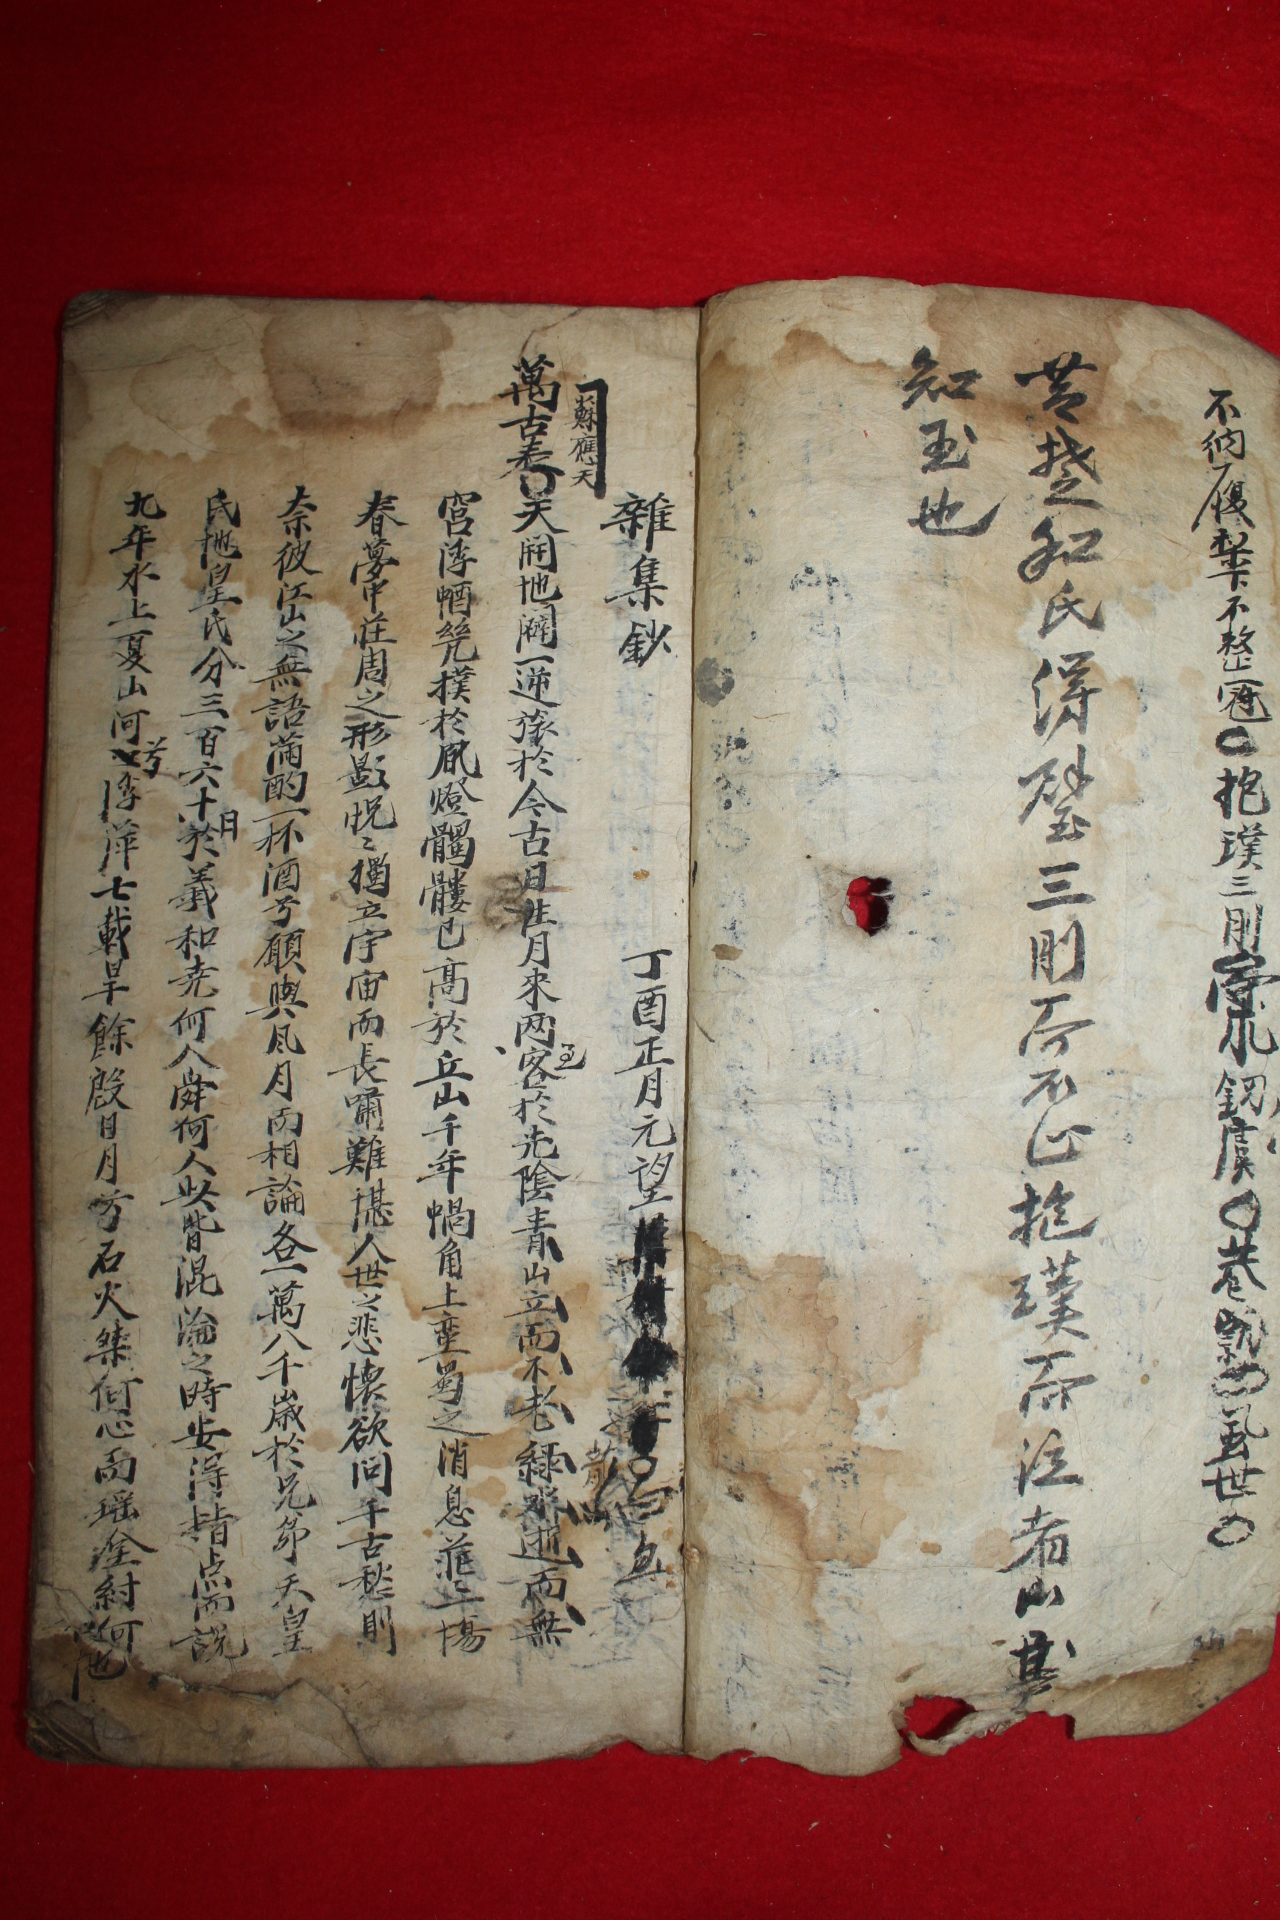 不納履 梨下不整冠〇抱璞三刖
昔楚和氏得璧三刖而不止抱璞而泣者山
知玉也
雜集鈔 丁酉正月元望
蘇應天
萬古愁〇天開地闢一逆旅於今古日徃月來两客於光陰青山立而不老綠水逝而無
宮浮蝤甍撲於風燈髑髏已高於丘山千年蝸角上蛮蜀之消息一場
春夢中莊周之形影怳〻獨立宇宙而長嘯難堪人世之悲懷欲問千古愁則
奈彼江山之無語滿酌一杯酒兮願與風月而相論各一萬八千歲於兄弟天皇
氏地皇氏分三百六十日於羲和堯何人舜何人此皆混淪之時安得指点而説
九年水上夏山河兮浮萍七載旱餘殷日月兮石火桀何心而瑶坮紂何